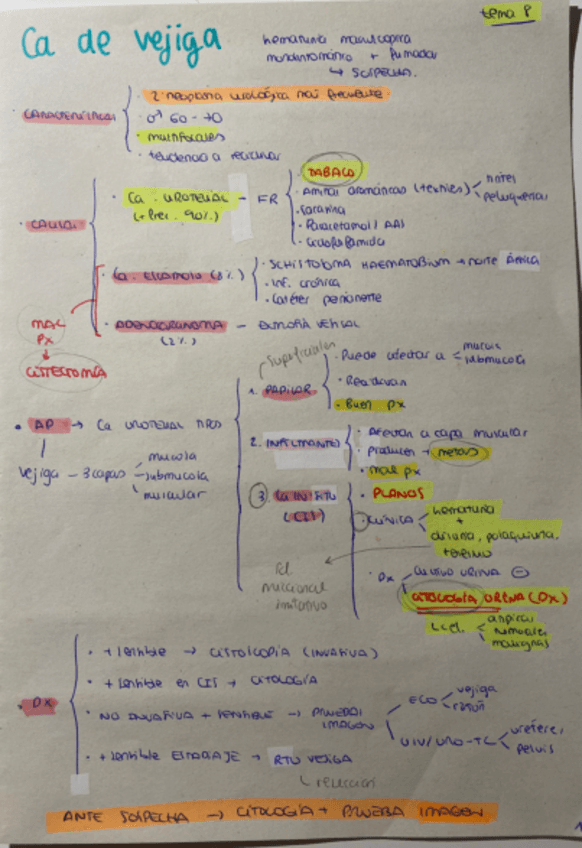 tema 8
Ca de vejiga
hematuria macroscópica
monosintomática + fumador
↳ SOSPECHA.
· CARACTERÍSTICAS
· 2ª neoplasia urológica más frecuente
· ♂ 60-70
· multifocales
· tendencia a recidivar
· CAUSAS
· Ca. UROTELIAL - FR
(+ frec. 90%)
· TABACO
· Aminas aromáticas (textiles)
tintes
peluquerías
· Sacarina
· Paracetamol / AAS
· Ciclofosfamida
· Ca. ESCAMOSO (8%)
· SCHISTOSOMA HAEMATOBIUM → norte África
· Inf. crónica
· Catéter permanente
· ADENOCARCINOMA - EXTROFIA VESICAL
(2%)
MAL
PX
↓
CISTECTOMÍA
· AP → Ca UROTELIAL TIPOS
vejiga - 3 capas
mucosa
submucosa
muscular
superficiales
1. PAPILAR
· Puede afectar a
mucosa
submucosa
· Recidivan
· Buen px
2. INFILTRANTE
· Afectan a capa muscular
· producen → metas
· mal px
3. Ca IN SITU
(CIS)
· PLANOS
· CLÍNICA
hematuria
+
disuria, polaquiuria,
tenesmo
sd
miccional
irritativo
· Dx
CULTIVO URINA ⊖
CITOLOGÍA URINA (DX)
↳ cél.
atípicas
tumorales
malignas
· DX
· + sensible → CISTOSCOPIA (INVASIVA)
· + sensible en CIS → CITOLOGÍA
· NO INVASIVA + SENSIBLE → PRUEBAS
IMAGEN
ECO
vejiga
riñón
UIV/URO-TC
uréteres
pelvis
· + sensible ESTADIAJE → RTU VEJIGA
↳ resección
ANTE SOSPECHA → CITOLOGÍA + PRUEBA IMAGEN
1